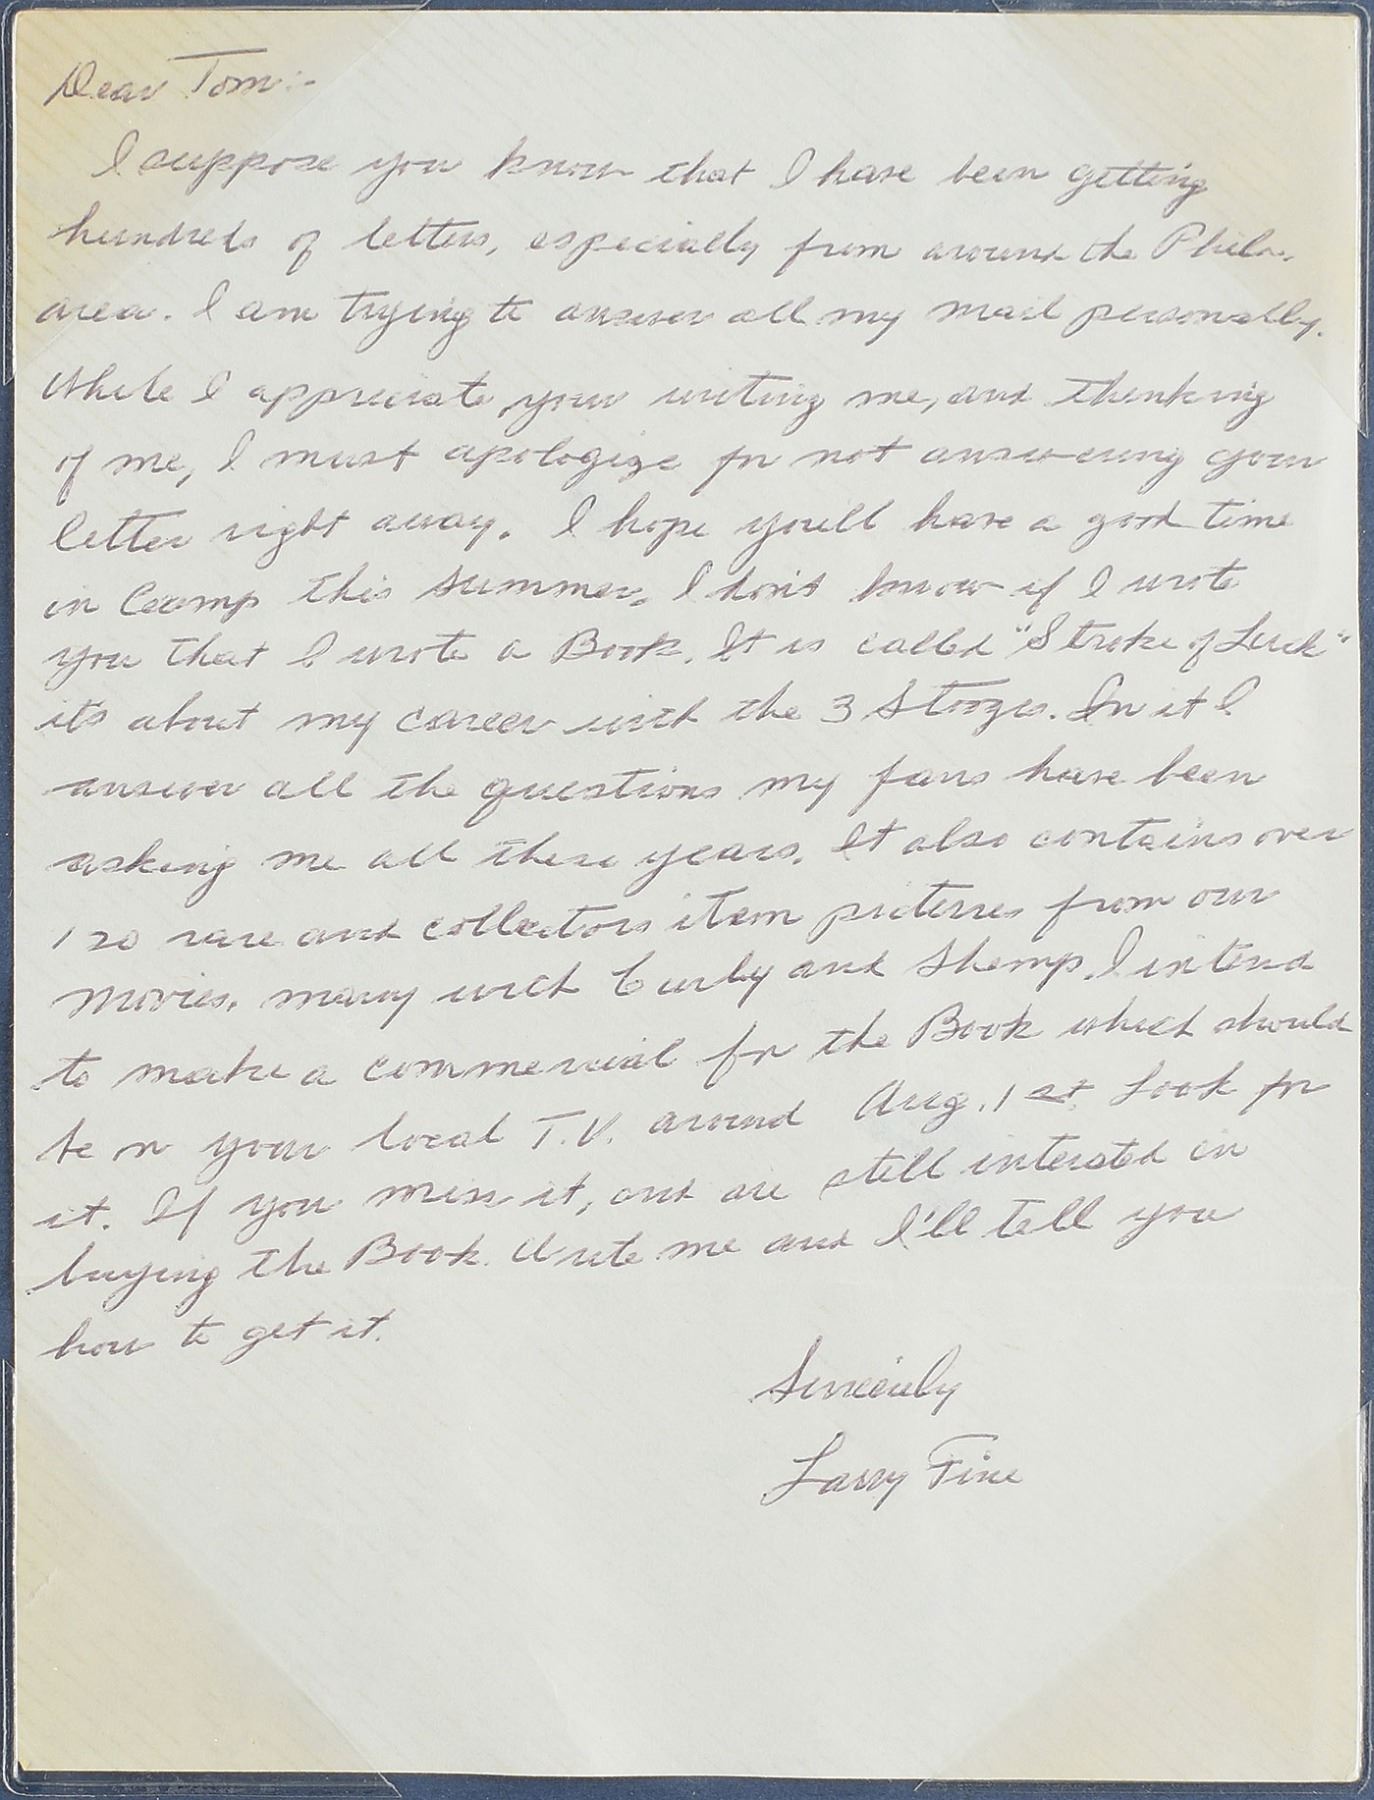 Dear Tom:-
I suppose you know that I have been getting
hundreds of letters, especially from around the Phila.
area. I am trying to answer all my mail personally.
While I appreciate your writing me, and thinking
of me, I must apologize for not answering your
letter right away. I hope you'll have a good time
in Camp this summer. I don't know if I wrote
you that I wrote a Book. It is called "Stroke of Luck"
it's about my career with the 3 Stooges. In it I
answer all the questions my fans have been
asking me all these years. It also contains over
120 rare and collectors item pictures from our
movies. many with Curly and Shemp. I intend
to make a commercial for the Book which should
be on your local T.V. around Aug. 1st. Look for
it. If you miss it, and are still intersted in
buying the Book. Write me and I'll tell you
how to get it.
Sincerely
Larry Fine